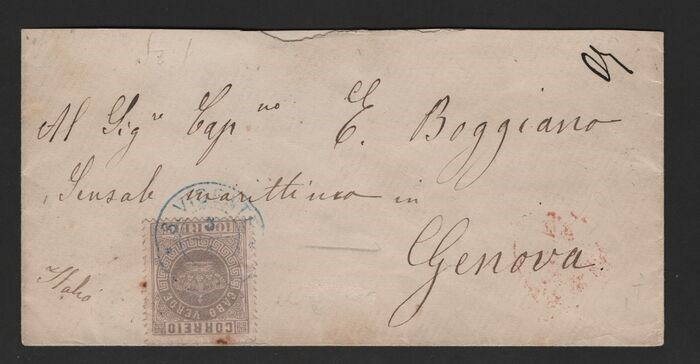 Al Sig.re Cap.no E. Boggiano
Sensale marittimo in
Genova.
Italia
S. VICENTE
3
100 REIS
CABO VERDE
CORREIO